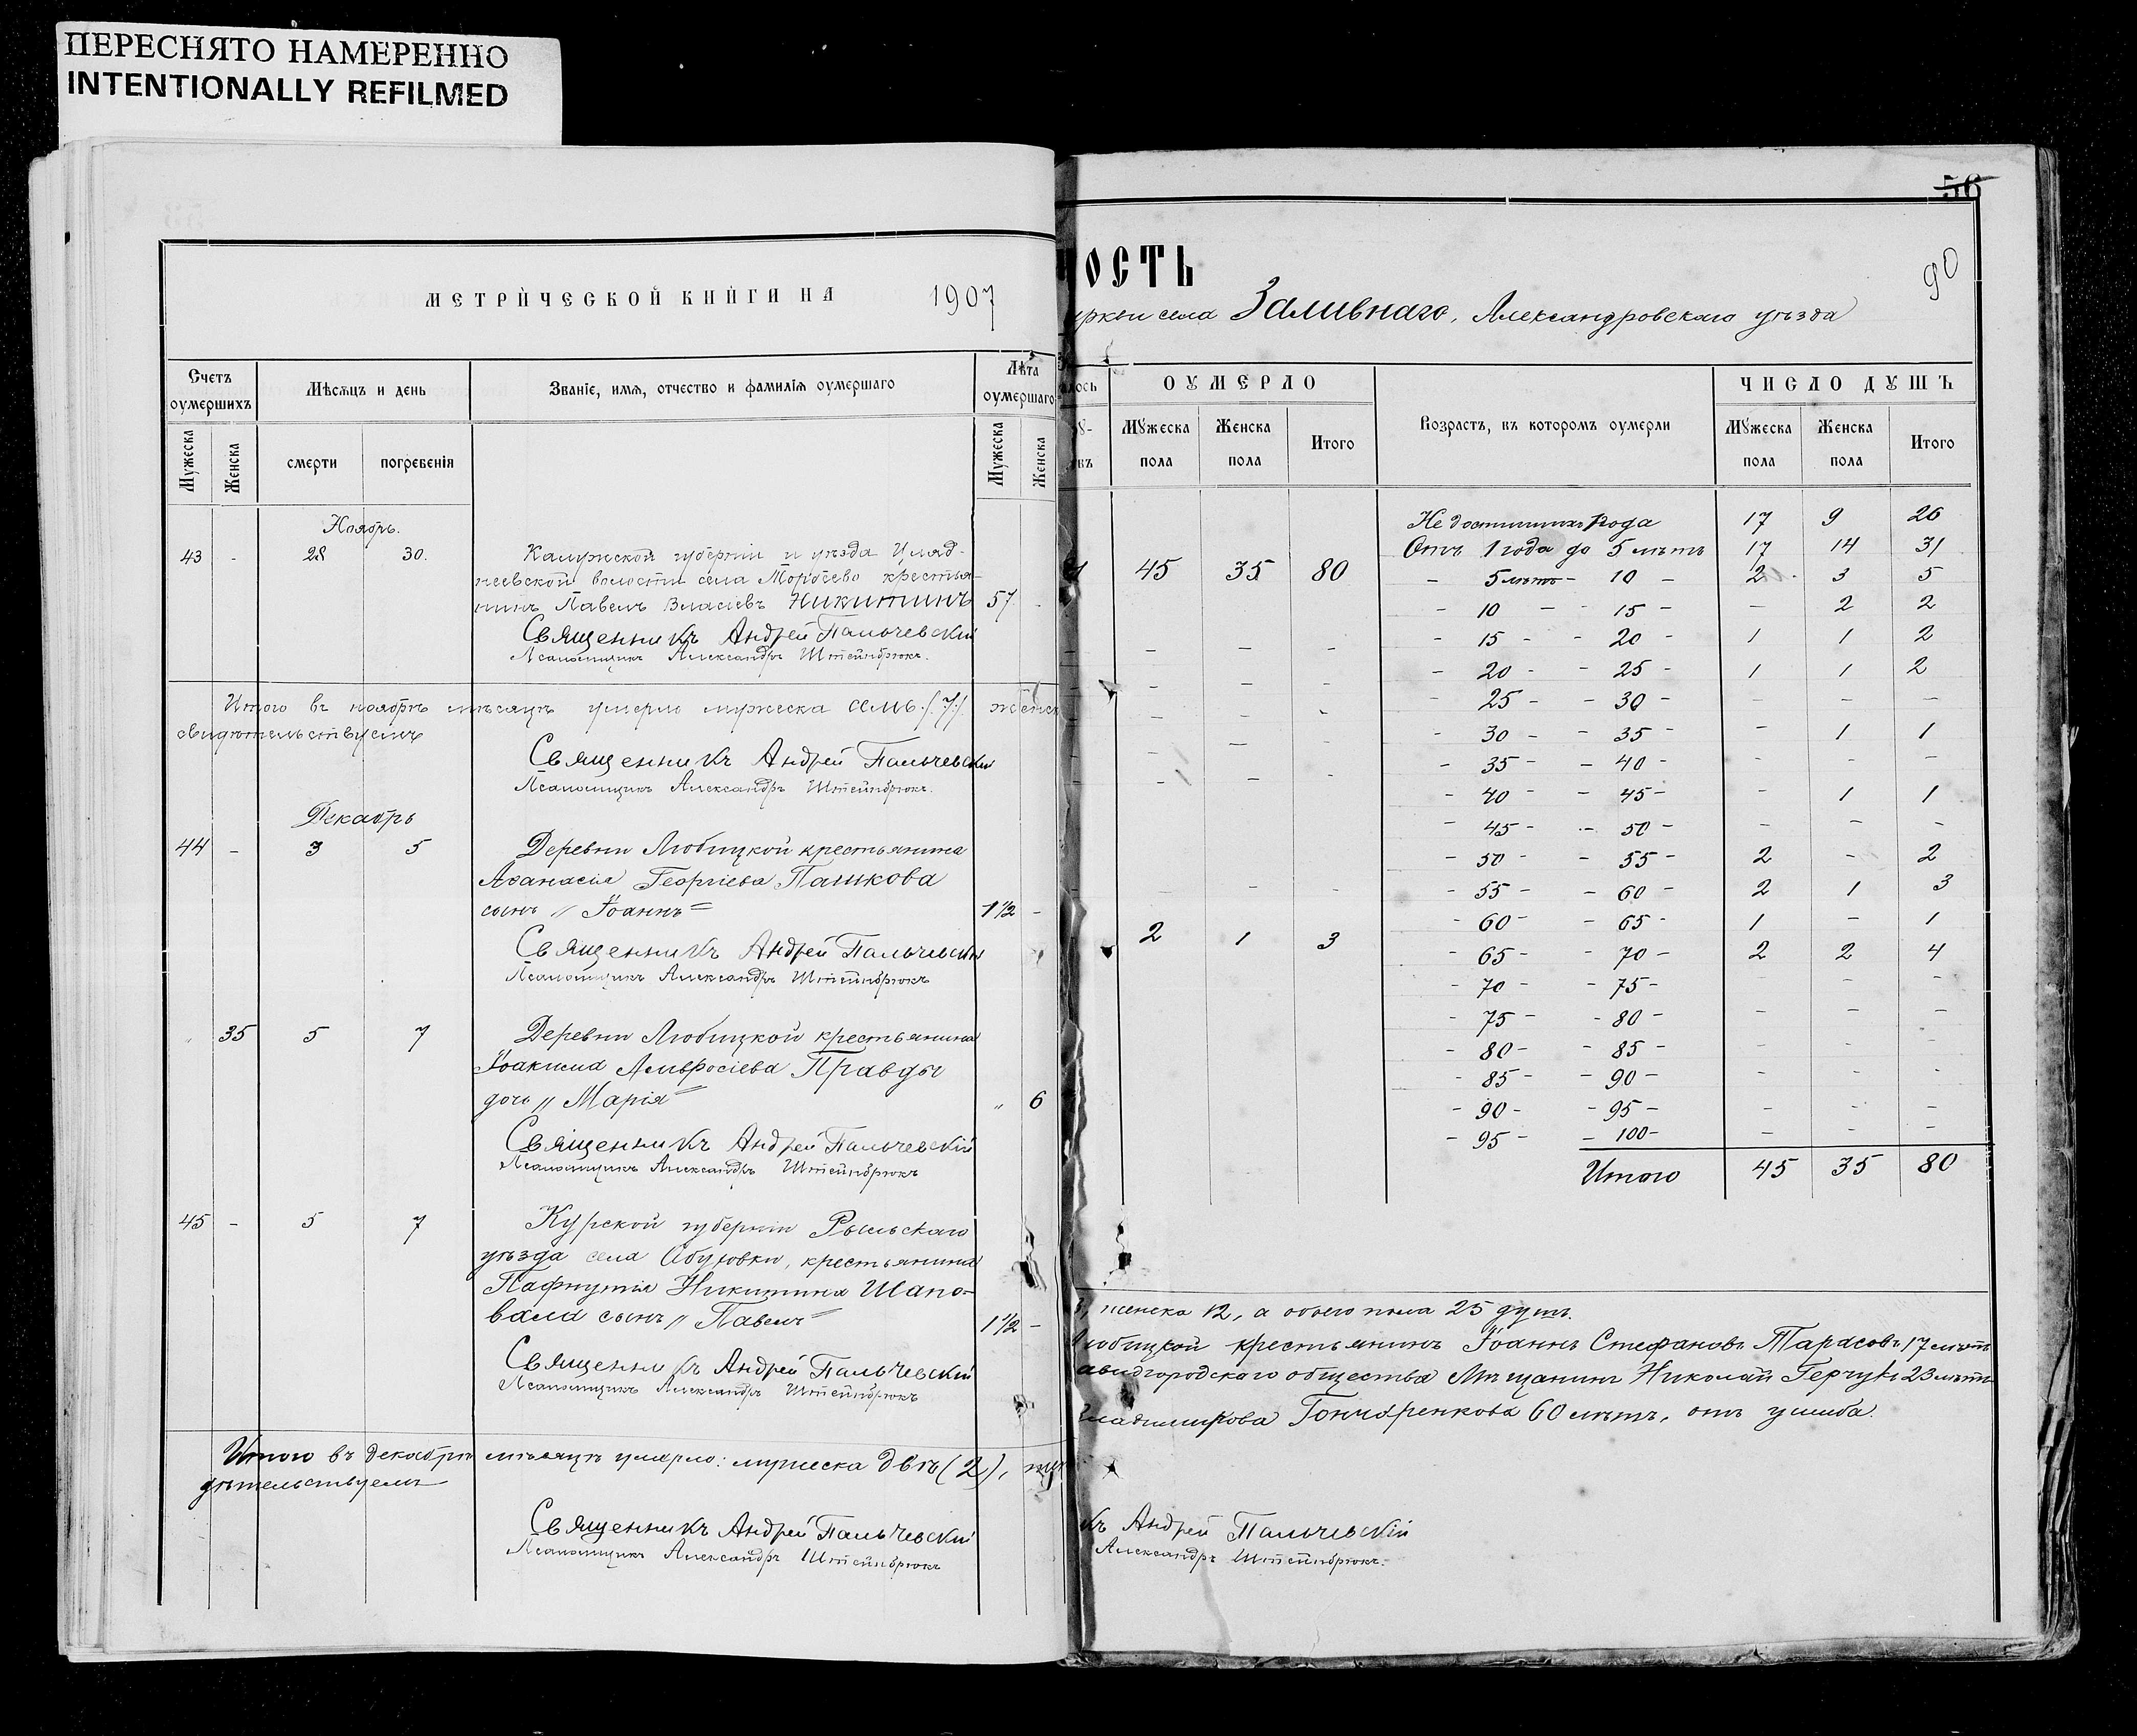 ПЕРЕСНЯТО НАМЕРЕННО
INTENTIONALLY REFILMED
МЕТРИЧЕСКОЙ КНИГИ НА 1907
Счетъ оумершихъ
Мѣсяцъ и день
Званіе, имя, отчество и фамилія оумершаго
Лѣта оумершаго
Мужеска
Женска
смерти
погребенія
Мужеска
Женска
Ноябрь.
43 - 28 30. Калужской губерніи и уѣзда
волости села крестья-
нинъ Павелъ Власіевъ Никитинъ 57 -
Священникъ Андрей Пальчевскій
Псаломщикъ Александръ Штейнбрюкъ.
Итого въ ноябрѣ мѣсяцѣ умерло мужеска семь (7)
свидѣтельствуемъ
Священникъ Андрей Пальчевскій
Псаломщикъ Александръ Штейнбрюкъ.
Декабрь
44 - 3 5 Деревни Любицкой крестьянина
Аѳанасія Георгіева Пашкова
сынъ „Іоаннъ" 1½ -
Священникъ Андрей Пальчевскій
Псаломщикъ Александръ Штейнбрюкъ
„ 35 5 7 Деревни Любицкой крестьянина
Іоакима Амвросіева Правды
дочь „Марія" „ 6
Священникъ Андрей Пальчевскій
Псаломщикъ Александръ Штейнбрюкъ
45 - 5 7 Курской губерніи Рыльскаго
уѣзда села крестьянина
Пафнутія Никитина Шапо-
вала сынъ „Павелъ" 1½ -
Священникъ Андрей Пальчевскій
Псаломщикъ Александръ Штейнбрюкъ
Итого въ декабрѣ мѣсяцѣ умерло: мужеска двѣ (2),
дѣтельствуемъ
Священникъ Андрей Пальчевскій
Псаломщикъ Александръ Штейнбрюкъ
56
90
ОСТЬ
церкви села Заливнаго, Александровскаго уѣзда
ОУМЕРЛО
Возрастъ, въ которомъ оумерли
ЧИСЛО ДУШЪ
Мужеска пола
Женска пола
Итого
Мужеска пола
Женска пола
Итого
45 35 80
2 1 3
Недостигшихъ года 17 9 26
Отъ 1 года до 5 лѣтъ 17 14 31
- 5 лѣтъ - 10 - 2 3 5
- 10 - - 15 - - 2 2
- 15 - - 20 - 1 1 2
- 20 - - 25 - 1 1 2
- 25 - - 30 - - - -
- 30 - - 35 - - 1 1
- 35 - - 40 - - - -
- 40 - - 45 - - 1 1
- 45 - - 50 - - - -
- 50 - - 55 - 2 - 2
- 55 - - 60 - 2 1 3
- 60 - - 65 - 1 - 1
- 65 - - 70 - 2 2 4
- 70 - - 75 - - - -
- 75 - - 80 - - - -
- 80 - - 85 - - - -
- 85 - - 90 - - - -
- 90 - - 95 - - - -
- 95 - - 100 - - - -
Итого 45 35 80
женска 12, а обоего пола 25 душъ.
Любицкой крестьянинъ Іоаннъ Стефановъ Тарасовъ 17 лѣтъ
городскаго общества Мѣщанинъ Николай Герчукъ 23 лѣтъ
Владимирова Гончаренкова 60 лѣтъ, отъ ушиба.
къ Андрей Пальчевскій
Александръ Штейнбрюкъ.